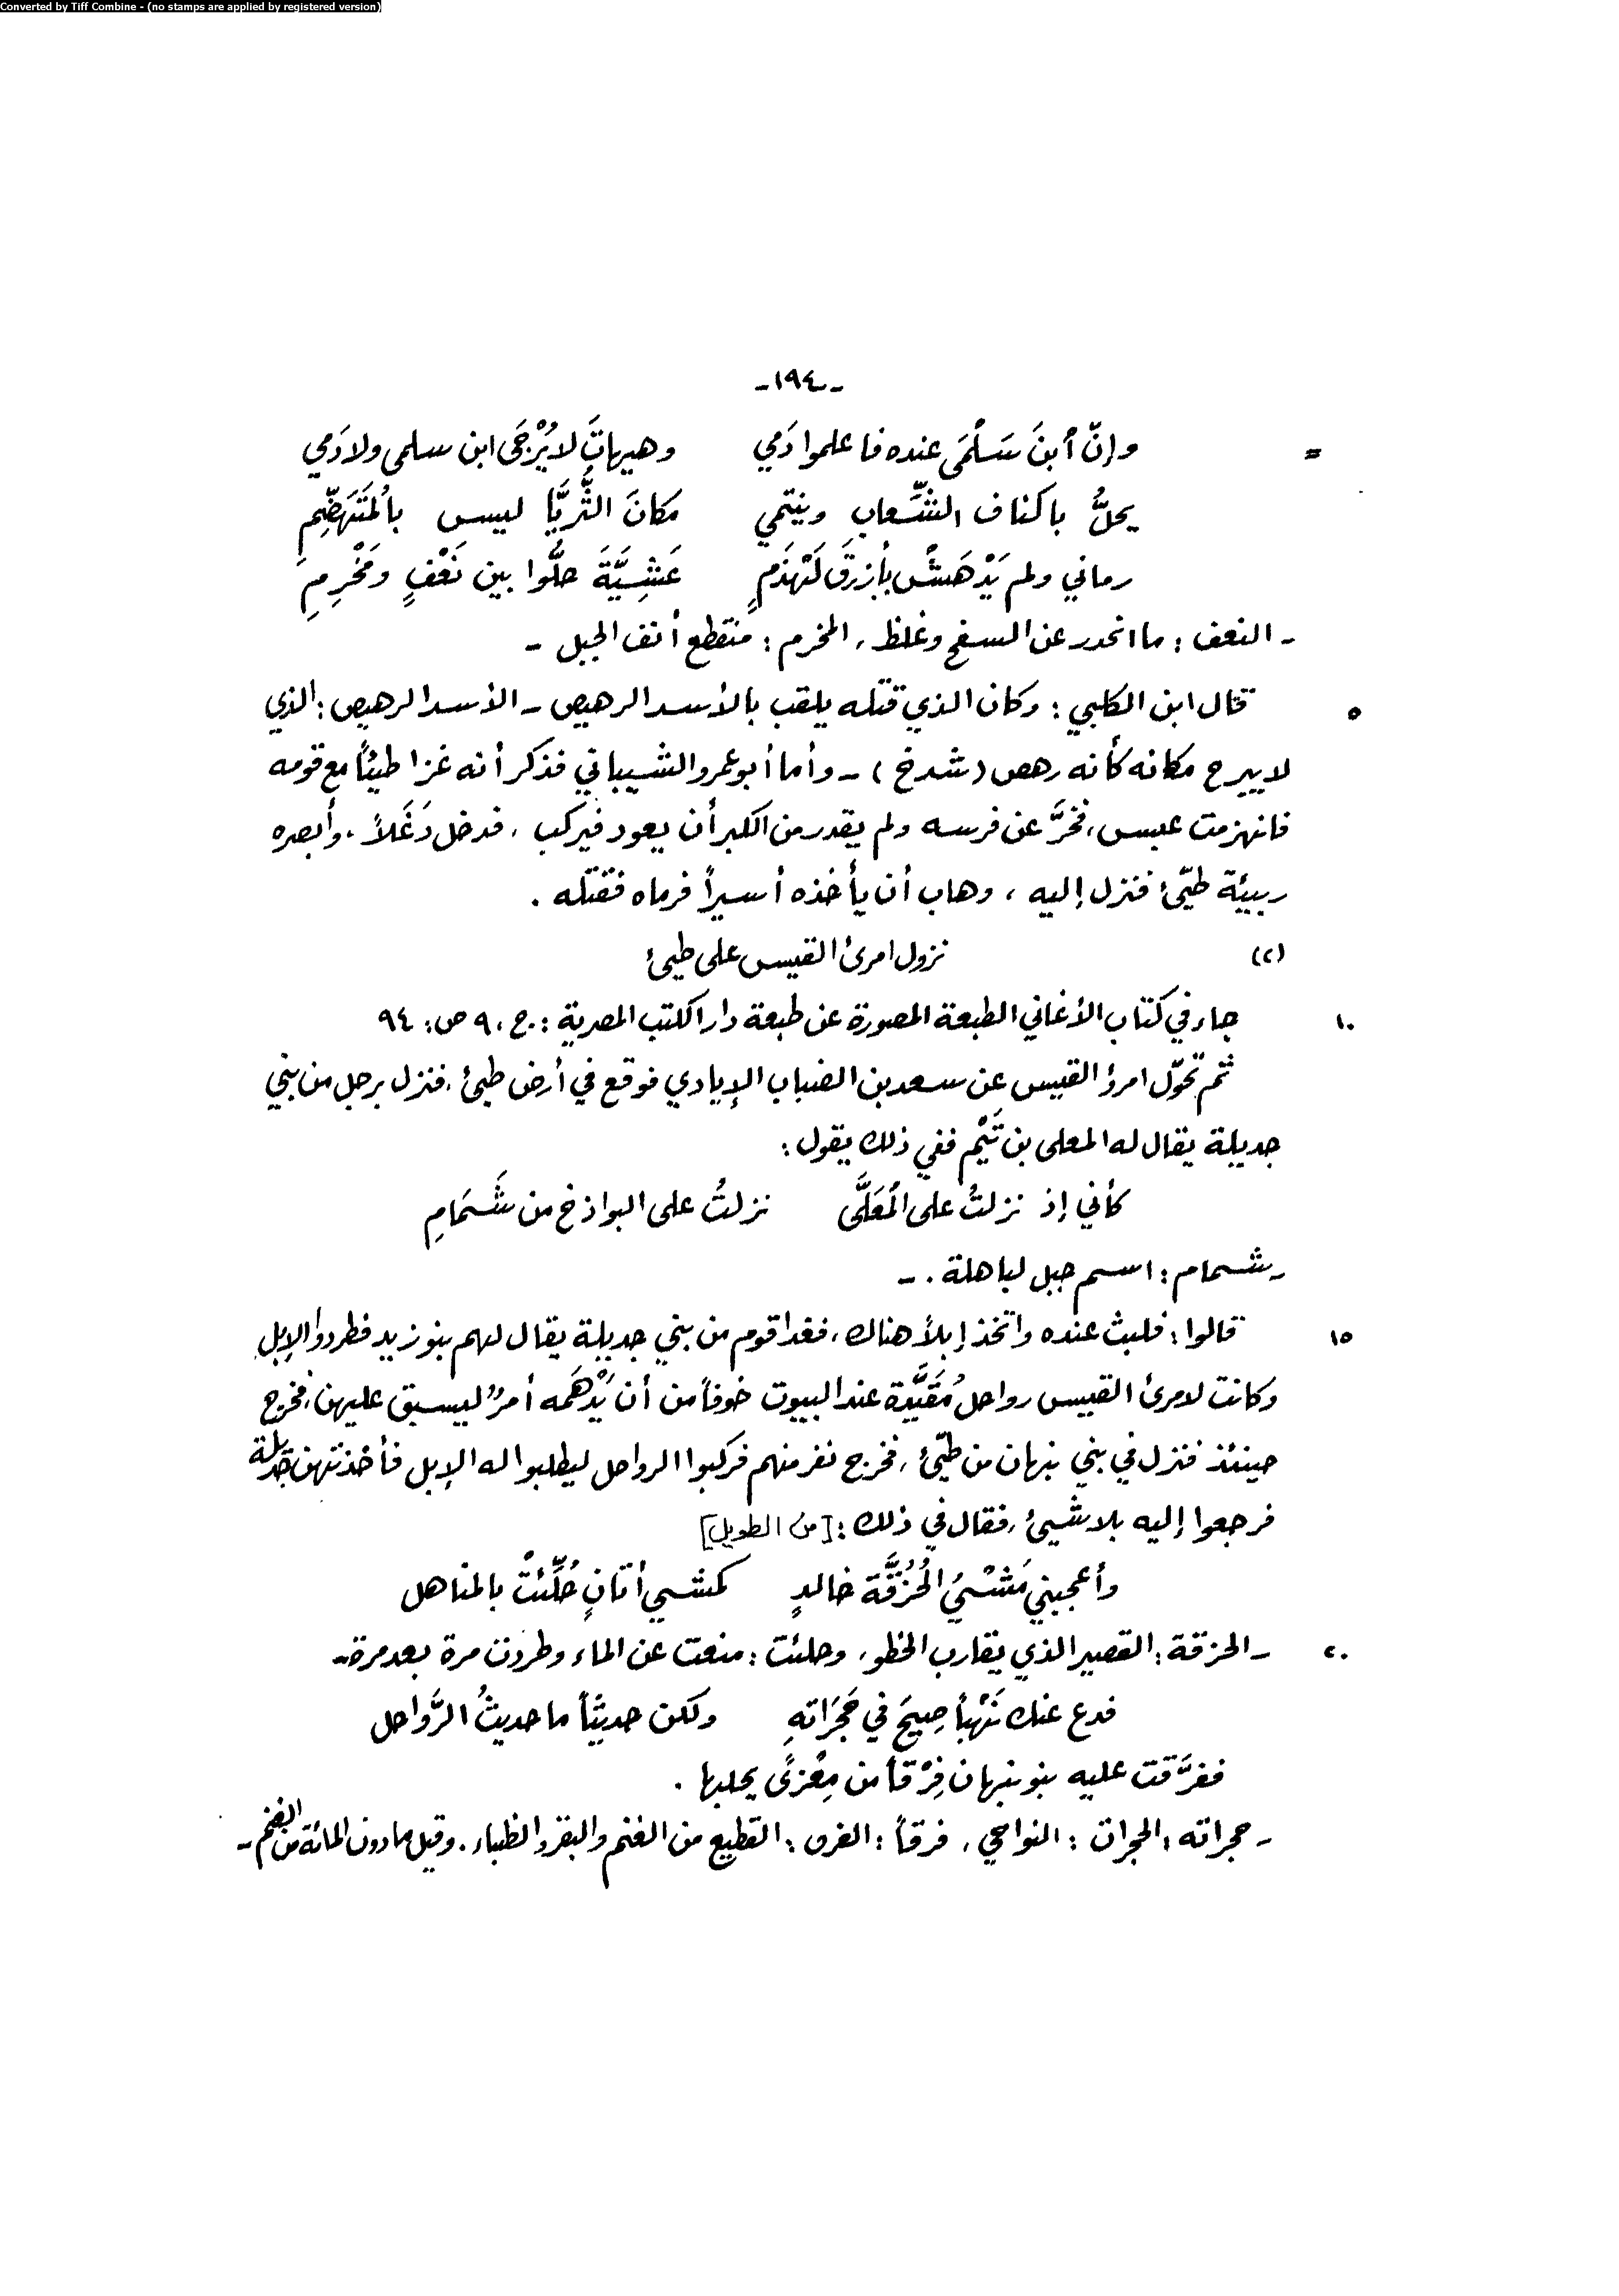 Converted by Tiff Combine - (no stamps are applied by registered version)
-١٩٤-
= وإنّ أبنَ سَلْمَى عنده فاعلموا دَمي وهيهاتَِ لا يُرْجَى ابن سلمى ولا دَمي
يحلُّ بأكناف الشِّعاب وينتمي مكانَ الثُّرَيَّا ليس بالُمتَهَضِّمِ
رماني ولم يَدْهَشْ بأزرقَ لَهْذَمٍ عَشِيَّةَ حلُّوا بين نَعْفٍ ومَخْرِمِ
- النعف : ما انحدر عن السفح وغلظ ، المخرم : منقطع أنف الجبل -
٥ قال ابن الكلبي : وكان الذي قتله يلقب بالأسد الرهيص - الأسد الرهيص : الذي
لا يبرح مكانه كأنه رهص (شدخ) - وأما أبو عمرو الشيباني فذكر أنه غزا طيئاً مع قومه
فانهزمت عبس ، فخرَّ عن فرسه ولم يقدر من الكبر أن يعود فيركب ، فدخل دَغَلاً ، وأبصره
ربيئة طيّئ فنزل إليه ، وهاب أن يأخذه أسيراً فرماه فقتله .
(٢) نزول امرئ القيس على طيئ
١٠ جاء في كتاب الأغاني الطبعة المصورة عن طبعة دار الكتب المصرية : ج ، ٩ ص : ٩٤
ثم تحوّل امرؤ القيس عن سعد بن الضباب الإيادي فوقع في أرض طيئ ، فنزل برجل من بني
جديلة يقال له المعلى بن تَيْم ففي ذلك يقول :
كأني إذ نزلتُ على المُعَلَّى نزلتُ على البواذخ من شَمَامِ
- شمام : اسم جبل لباهلة . -
١٥ قالوا : فلبث عنده واتخذ إبلاً هناك ، فغدا قوم من بني جديلة يقال لهم بنو زيد فطردوا الإبل
وكانت لامرئ القيس رواحل مُقَيَّدة عند البيوت خوفاً من أن يَدْهَمه أمرٌ ليسبق عليهن ، فخرج
حينئذ فنزل في بني نبهان من طيّئ ، فخرج نفر منهم فركبوا الرواحل ليطلبوا له الإبل فأخذتهن جديلة
فرجعوا إليه بلا شيئ ، فقال في ذلك : [من الطويل]
وأعجبني مَشْيُ الحُزُقَّة خالدٍ كمشي أتانٍ حُلِّئتْ بالمناهل
٢٠ - الحزقة : القصير الذي يقارب الخطو ، وحلئت : منعت عن الماء وطردت مرة بعد مرة -
فدع عنك نَهْباً صِيحَ في حَجَرَاتهِ ولكن حديثاً ما حديثُ الرَّواحل
ففرَّقت عليه بنو نبهان فِرْقاً من مِعْزىً يحلبها .
- حجراته : الحجرات : النواحي ، فرقاً : الفرق : القطيع من الغنم والبقر والظباء . وقيل ما دون المائة من الغنم -